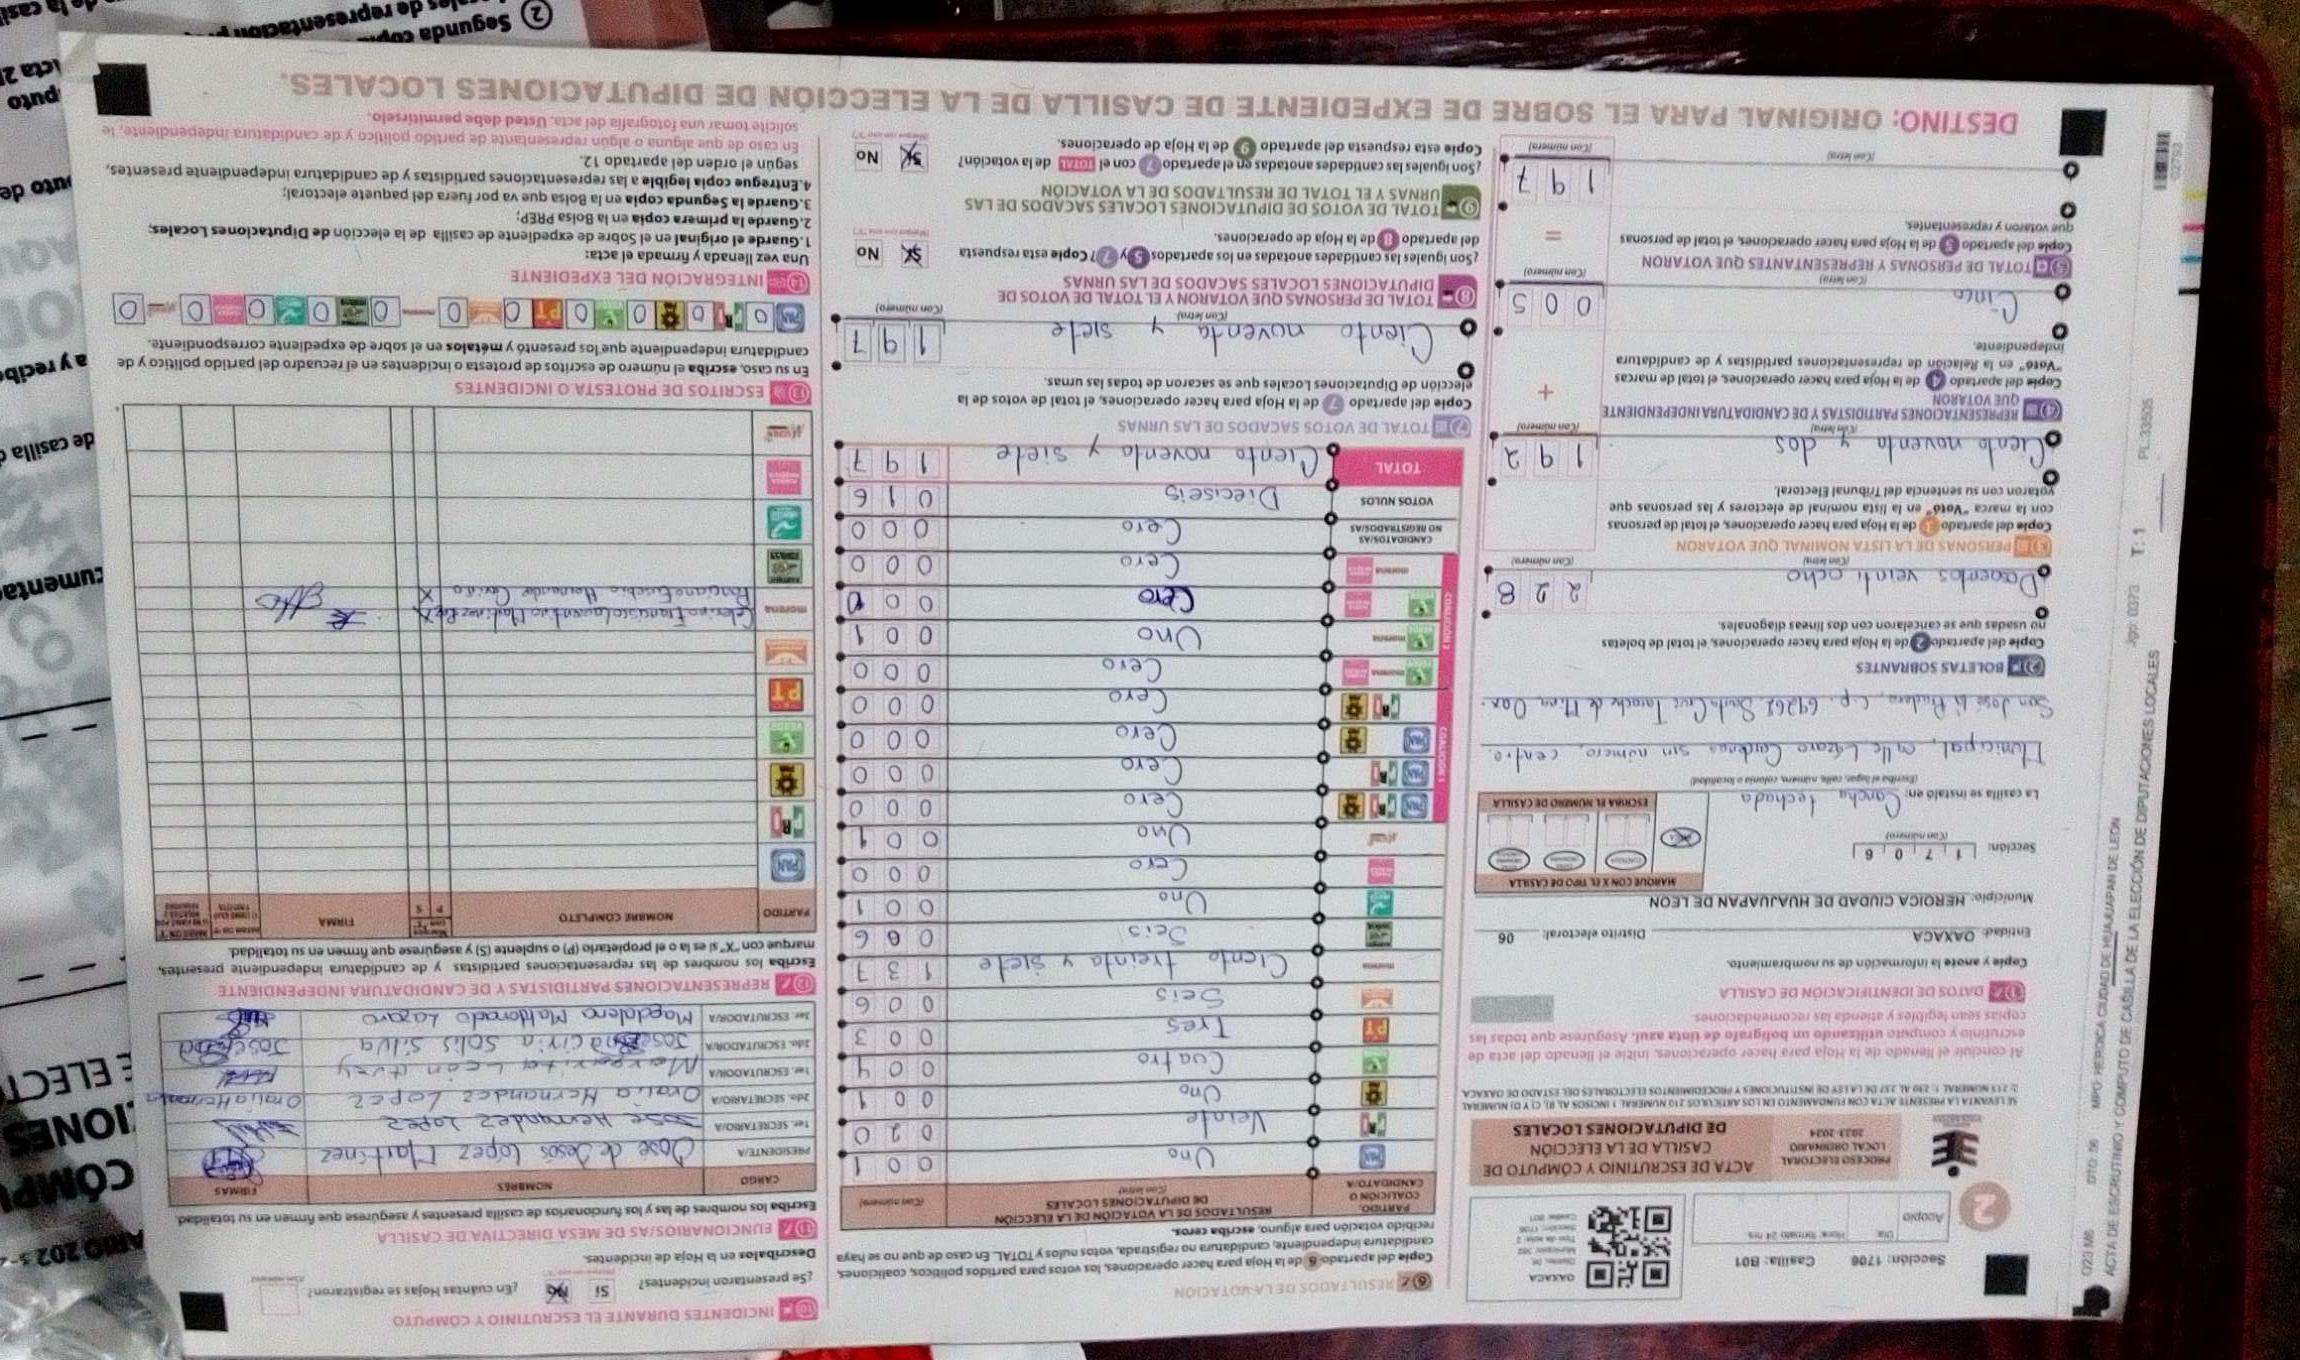 2
Sección: 1706 Casilla: B01
Día Hora: formato 24 hrs.
Acopio
OAXACA
PROCESO ELECTORAL LOCAL ORDINARIO 2023-2024
ACTA DE ESCRUTINIO Y CÓMPUTO DE CASILLA DE LA ELECCIÓN DE DIPUTACIONES LOCALES
SE LEVANTA LA PRESENTE ACTA CON FUNDAMENTO EN LOS ARTÍCULOS 210 NUMERAL 1 INCISOS A), B), C) Y D) NUMERAL
2; 215 NUMERAL 1; 230 AL 237 DE LA LEY DE INSTITUCIONES Y PROCEDIMIENTOS ELECTORALES DEL ESTADO DE OAXACA
Al concluir el llenado de la Hoja para hacer operaciones, inicie el llenado del acta de
escrutinio y cómputo utilizando un bolígrafo de tinta azul. Asegúrese que todas las
copias sean legibles y atienda las recomendaciones.
1 DATOS DE IDENTIFICACIÓN DE CASILLA
Copie y anote la información de su nombramiento.
Entidad: OAXACA Distrito electoral: 06
Municipio: HEROICA CIUDAD DE HUAJUAPAN DE LEON
Sección: 1706
(Con número)
MARQUE CON X EL TIPO DE CASILLA
ESCRIBA EL NÚMERO DE CASILLA
La casilla se instaló en: Cancha techada
(Escriba el lugar, calle, número, colonia o localidad)
Municipal, calle Lázaro Cárdenas sin número, centro.
San José la Pradera, C.p. 69262 Santa Cruz Tacache de Mina Oax.
2 BOLETAS SOBRANTES
Copie del apartado 2 de la Hoja para hacer operaciones, el total de boletas
no usadas que se cancelaron con dos líneas diagonales.
Doscientos veinti ocho 228
(Con letra) (Con número)
3 PERSONAS DE LA LISTA NOMINAL QUE VOTARON
Copie del apartado 3 de la Hoja para hacer operaciones, el total de personas
con la marca "Votó" en la lista nominal de electores y las personas que
votaron con su sentencia del Tribunal Electoral.
Ciento noventa y dos 192
(Con letra) (Con número)
4 REPRESENTACIONES PARTIDISTAS Y DE CANDIDATURA INDEPENDIENTE
QUE VOTARON
Copie del apartado 4 de la Hoja para hacer operaciones, el total de marcas
"Votó" en la Relación de representaciones partidistas y de candidatura
independiente.
+
Cinco 005
(Con letra) (Con número)
5 TOTAL DE PERSONAS Y REPRESENTANTES QUE VOTARON
Copie del apartado 5 de la Hoja para hacer operaciones, el total de personas
que votaron y representantes.
=
197
(Con letra) (Con número)
6 RESULTADOS DE LA VOTACIÓN
Copie del apartado 6 de la Hoja para hacer operaciones, los votos para partidos políticos, coaliciones,
candidatura independiente, candidatura no registrada, votos nulos y TOTAL. En caso de que no se haya
recibido votación para alguno, escriba ceros.
PARTIDO, COALICIÓN O CANDIDATO/A
RESULTADOS DE LA VOTACIÓN DE LA ELECCIÓN DE DIPUTACIONES LOCALES
(Con letra) (Con número)
PAN Uno 001
PRI Veinte 020
PRD Uno 001
VERDE Cuatro 004
PT Tres 003
Seis 006
morena Ciento treinta y siete 137
Seis 006
Uno 001
Cero 000
Uno 001
COALICIÓN 1
PAN PRI PRD Cero 000
PAN PRI Cero 000
PAN PRD Cero 000
PRI PRD Cero 000
COALICIÓN 2
VERDE morena Cero 000
VERDE morena Uno 001
VERDE Cero 000
morena Cero 000
CANDIDATOS/AS NO REGISTRADOS/AS Cero 000
VOTOS NULOS Dieciseis 016
TOTAL Ciento noventa y siete 197
7 TOTAL DE VOTOS SACADOS DE LAS URNAS
Copie del apartado 7 de la Hoja para hacer operaciones, el total de votos de la
elección de Diputaciones Locales que se sacaron de todas las urnas.
Ciento noventa y siete 197
(Con letra) (Con número)
8 TOTAL DE PERSONAS QUE VOTARON Y EL TOTAL DE VOTOS DE
DIPUTACIONES LOCALES SACADOS DE LAS URNAS
¿Son iguales las cantidades anotadas en los apartados 5 y 7? Copie esta respuesta
del apartado 8 de la Hoja de operaciones.
Sí No
9 TOTAL DE VOTOS DE DIPUTACIONES LOCALES SACADOS DE LAS
URNAS Y EL TOTAL DE RESULTADOS DE LA VOTACIÓN
¿Son iguales las cantidades anotadas en el apartado 7 con el TOTAL de la votación?
Copie esta respuesta del apartado 9 de la Hoja de operaciones.
Sí No
10 INCIDENTES DURANTE EL ESCRUTINIO Y CÓMPUTO
¿Se presentaron incidentes? Sí No ¿En cuántas Hojas se registraron?
Descríbalos en la Hoja de incidentes.
11 FUNCIONARIOS/AS DE MESA DIRECTIVA DE CASILLA
Escriba los nombres de las y los funcionarios de casilla presentes y asegúrese que firmen en su totalidad.
CARGO NOMBRES FIRMAS
PRESIDENTE/A Jose de Jesús López Martínez
1er. SECRETARIO/A Jose Hernandez Lopez
2do. SECRETARIO/A Oralia Hernandez Lopez
1er. ESCRUTADOR/A Margarita León
2do. ESCRUTADOR/A Solis Silva
3er. ESCRUTADOR/A Magdalena Maldonado Lazaro
12 REPRESENTACIONES PARTIDISTAS Y DE CANDIDATURA INDEPENDIENTE
Escriba los nombres de las representaciones partidistas y de candidatura independiente presentes,
marque con "X" si es la o el propietario (P) o suplente (S) y asegúrese que firmen en su totalidad.
PARTIDO NOMBRE COMPLETO P S FIRMA
PAN
PRI
PRD
VERDE
PT
morena
13 ESCRITOS DE PROTESTA O INCIDENTES
En su caso, escriba el número de escritos de protesta o incidentes en el recuadro del partido político y de
candidatura independiente que los presentó y métalos en el sobre de expediente correspondiente.
PAN 0 PRI 0 PRD 0 VERDE 0 PT 0 0 morena 0 0 0 0 0
14 INTEGRACIÓN DEL EXPEDIENTE
Una vez llenada y firmada el acta:
1.Guarde el original en el Sobre de expediente de casilla de la elección de Diputaciones Locales;
2.Guarde la primera copia en la Bolsa PREP;
3.Guarde la Segunda copia en la Bolsa que va por fuera del paquete electoral;
4.Entregue copia legible a las representaciones partidistas y de candidatura independiente presentes,
según el orden del apartado 12.
En caso de que alguna o algún representante de partido político y de candidatura independiente, le
solicite tomar una fotografía del acta. Usted debe permitírselo.
DESTINO: ORIGINAL PARA EL SOBRE DE EXPEDIENTE DE CASILLA DE LA ELECCIÓN DE DIPUTACIONES LOCALES.
MPO: HEROICA CIUDAD DE HUAJUAPAN DE LEON
ACTA DE ESCRUTINIO Y CÓMPUTO DE CASILLA DE LA ELECCIÓN DE DIPUTACIONES LOCALES
T: 1
PL:33505